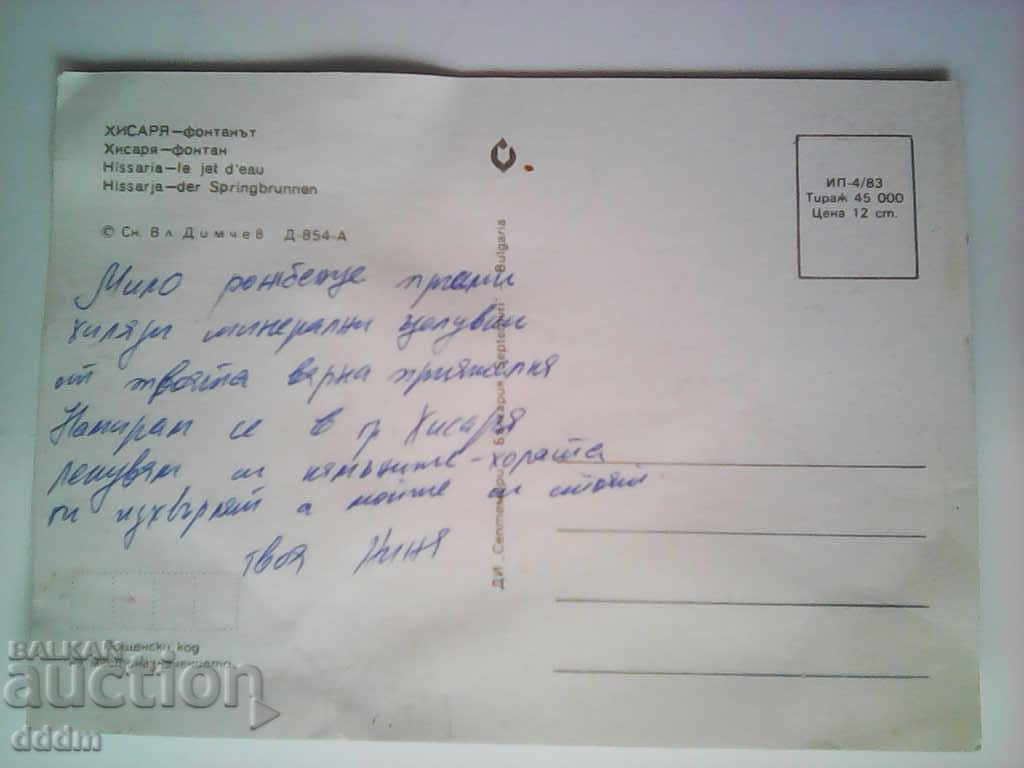 ХИСАРЯ—фонтанът
Хисаря—фонтан
Hissaria—le jet d'eau
Hissarja—der Springbrunnen
© Сн. Вл. Димчев Д-854-А
ИП-4/83
Тираж 45 000
Цена 12 ст.
Мило
хиляди минерални целувки
от твоята вярна приятелка
Намирам се в гр Хисаря
лекувам си камъните-хората
ги изхвърлят а моите си стоят
твоя Жиня
ДИ Септември България Septemvri Bulgaria
Пощенски код
BALKAN
auction
dddm